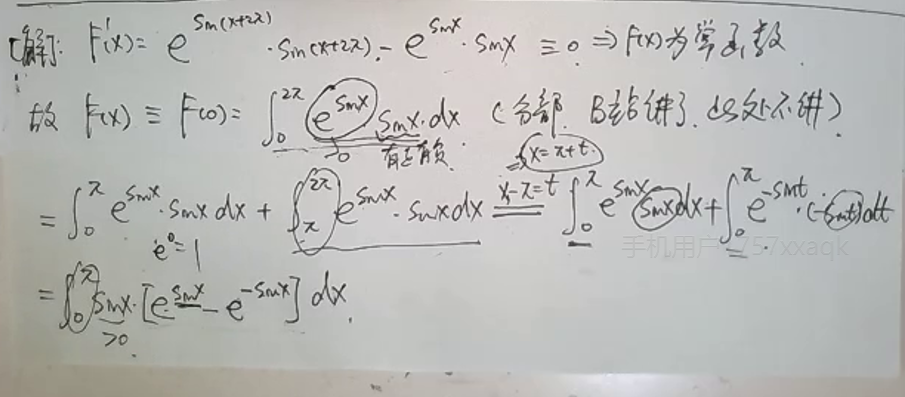 [解]: F'(x) = e^{sin(x+2π)} · sin(x+2π) - e^{sinx} · sinx ≡ 0 ⇒ F(x)为常函数
故 F(x) ≡ F(0) = ∫_0^{2π} e^{sinx} sinx · dx (分部, B站讲了, 此处不讲)
>0 有正有负 x = π+t
= ∫_0^π e^{sinx} · sinx dx + ∫_π^{2π} e^{sinx} · sinx dx \xlongequal{x-π=t} ∫_0^π e^{sinx} sinx dx + ∫_0^π e^{-sint} · (-sint) dt
e^0 = 1
手机用户 757xxaqk
= ∫_0^π sinx · [e^{sinx} - e^{-sinx}] dx
>0